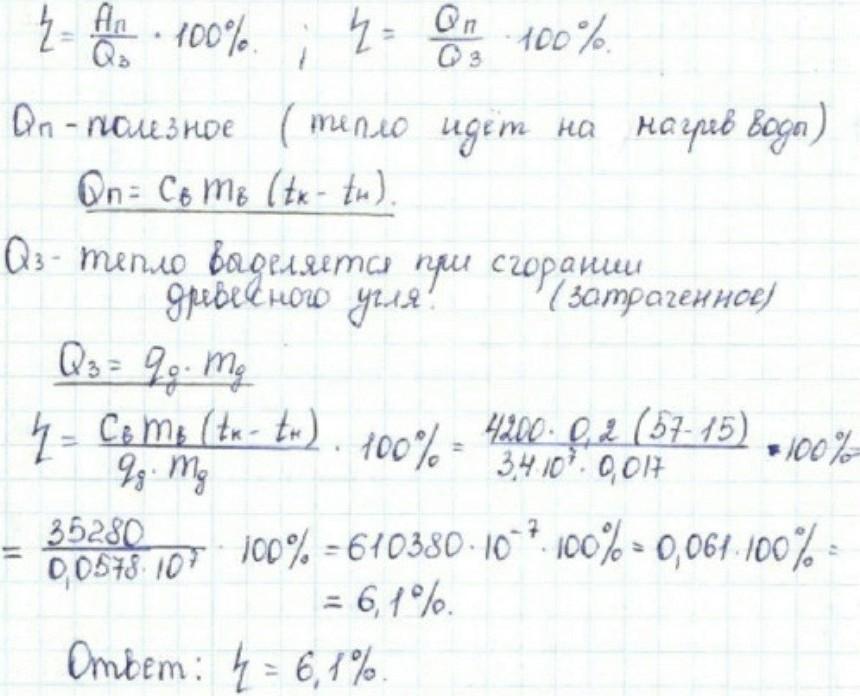 η = Aп/Qз · 100%. ; η = Qп/Qз · 100%.
Qп - полезное ( тепло идёт на нагрев воды)
Qп = Cв mв (tк - tн).
Qз - тепло выделяется при сгорании
древесного угля. (затраченное)
Qз = qд · mд
η = Cв mв (tк - tн)/qд · mд · 100% = 4200 · 0,2 (57-15)/3,4·10⁷ · 0,017 · 100% =
= 35280/0,0578·10⁷ · 100% = 610380·10⁻⁷·100% = 0,061·100% =
= 6,1%.
Ответ: η = 6,1%.